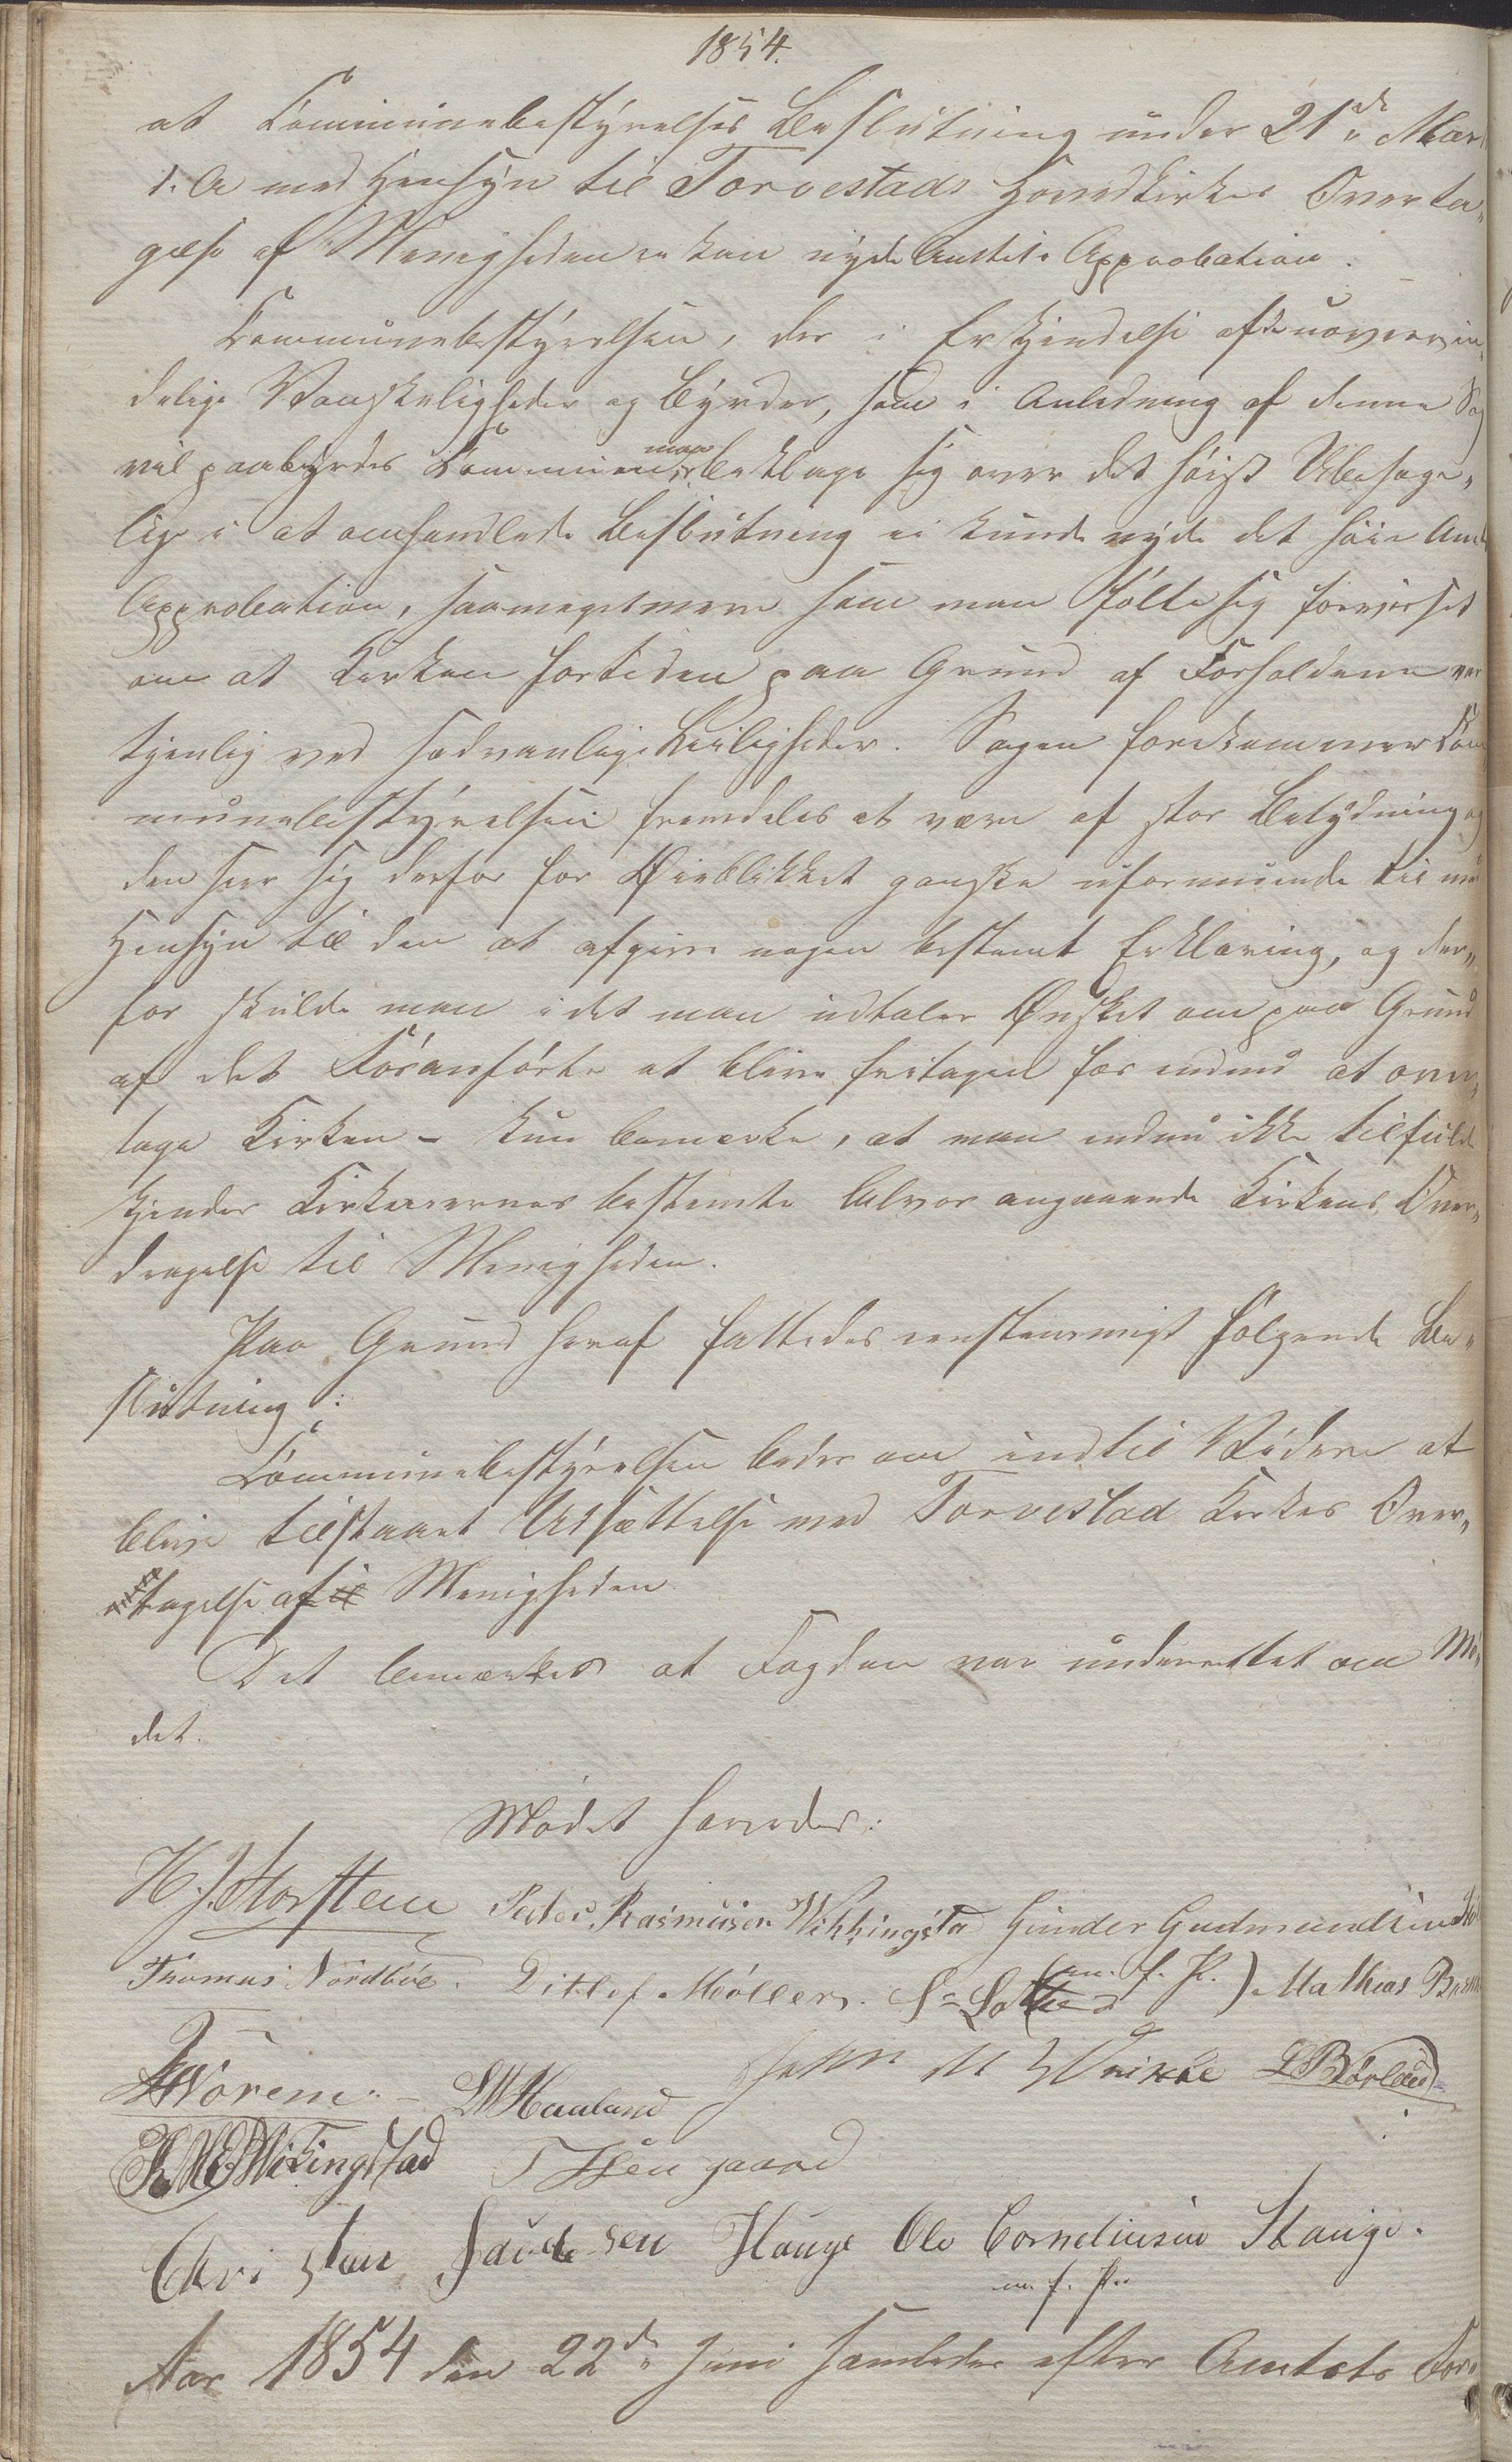 1854.
at Communebestyrelses Beslutning under 21de Mar
d. A med Hensyn til Torvestads Hovedkirkes Overta„
gelse af Menigheden ei kan nyde Amtets Approbation.
Communebestyrelsen, der i Erkjendelse af de uovervin„
delige Vanskeligheder og Byrder, som i Anledning af denne Sag
vil paabyrdes Communen, maa beklage sig over det høist Ubehage„
lige i at omhandlede Beslutning ei kunde nyde det høie Amts
Approbation, saameget mere som man følte sig forvisset
om at Kirken fortiden paa Grund af Forholdene var
tjenlig ved sædvanlige Leiligheder. Sagen forekommer Com
munebestyrelsen fremdeles at være af stor Betydning og
den seer sig derfor for Øieblikket ganske uformuende til med
Hensyn til den at afgive nogen bestemt Erklæring, og der„
for skulde man idet man udtaler Ønsket om paa Grund
af det Foranførte at blive fritagen for endnu at over„
tage Kirken – kun bemærke, at man endnu ikke tilfulde
kjender Kirkeeiernes bestemte Alvor angaaende Kirkens Over„
dragelse til Menigheden.
Paa Grund heraf fattedes eenstemmigt følgende Be„
slutning:
Communebestyrelsen beder om indtil Videre at
blive tilstaaet Udsættelse med Torvestad Kirkes Over„
tagelse af Menigheden
Det bemærkes at Fogden var underrettet om Mø„
det.
Mødet hævedes.
H. J. Storsteen Peder Rasmusen Wikkingsta Gunder Gudmundsen
Thomas Nordbøe. Ditlef Møller. (m. f. P.) Mathias
LMHaaland John M LBørland
Wikingstad
Christen Hauge Ole Corneliusen Stange.
m. f. P.
Aar 1854 den 22de Juni samledes efter Amtets For„